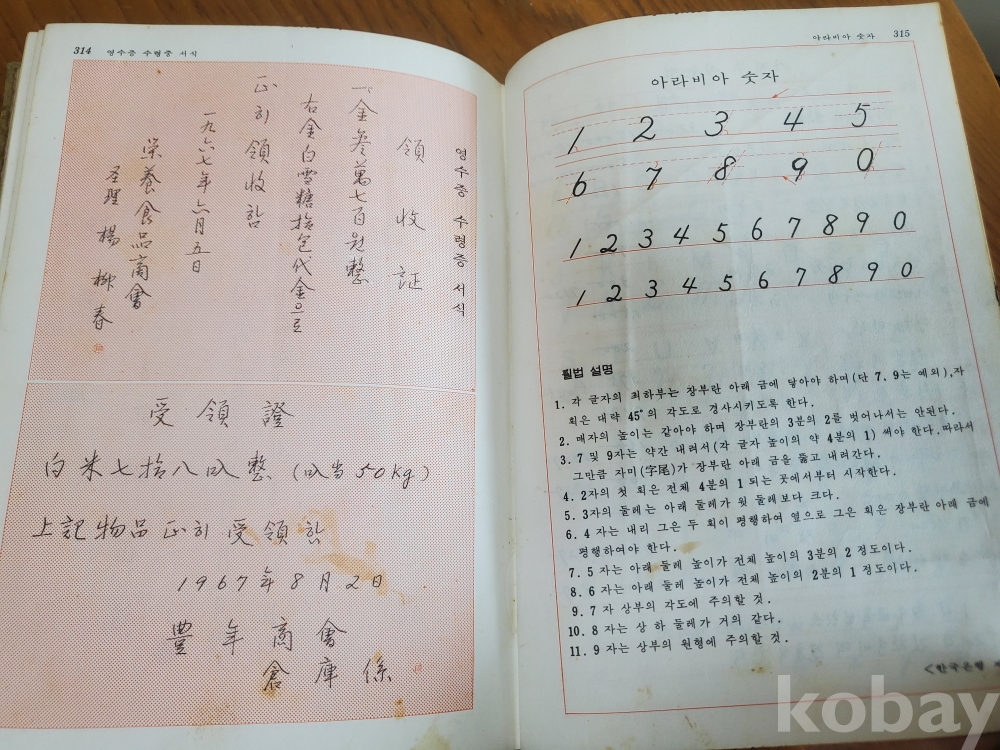 314 영수증 수령증 서식
영수증 수령증 서식
領收証
一金參萬七百원整
右金白雪糖拾包代金으로
正히 領收함
一九六七年 六月五日
栄養食品商會
圣理 楊柳春
受領證
白米七拾八叺整 (叺当 50kg)
上記物品正히 受領함
1967年8月2日
豊年商會
倉庫係
아라비아 숫자 315
아라비아 숫자
1 2 3 4 5
6 7 8 9 0
1 2 3 4 5 6 7 8 9 0
1 2 3 4 5 6 7 8 9 0
필법 설명
1. 각 글자의 최하부는 장부란 아래 금에 닿아야 하며(단 7, 9는 예외), 자
획은 대략 45°의 각도로 경사시키도록 한다.
2. 매자의 높이는 같아야 하며 장부란의 3분의 2를 벗어나서는 안된다.
3. 7 및 9자는 약간 내려서(각 글자 높이의 약 4분의 1) 써야 한다. 따라서
그만큼 자미(字尾)가 장부란 아래 금을 뚫고 내려간다.
4. 2자의 첫 획은 전체 4분의 1 되는 곳에서부터 시작한다.
5. 3자의 둘레는 아래 둘레가 윗 둘레보다 크다.
6. 4 자는 내리 그은 두 획이 평행하여 옆으로 그은 획은 장부란 아래 금에
평행하여야 한다.
7. 5 자는 아래 둘레 높이가 전체 높이의 3분의 2 정도이다.
8. 6 자는 아래 둘레 높이가 전체 높이의 2분의 1 정도이다.
9. 7 자 상부의 각도에 주의할 것.
10. 8 자는 상 하 둘레가 거의 같다.
11. 9 자는 상부의 원형에 주의할 것.
<한국은행
kobay